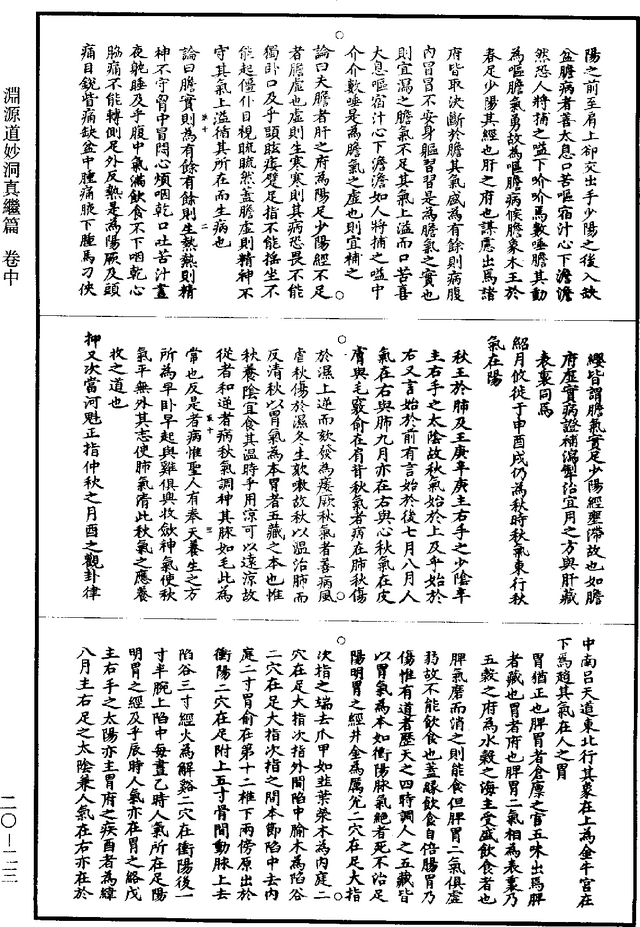 陽之前至肩上卻交出手少陽之後入缺
盆膽病者善太息口苦嘔宿汁心下澹澹
然恐人將捕之嗌下吤吤焉數唾膽其動
為嘔膽氣勇故為嘔膽病候膽象木王於
春足少陽其經也肝之府也謀慮出焉諸
府皆取決斷於膽其氣盛為有餘則病腹
內冒冒不安身軀習習是為膽氣之實也
則宜瀉之膽氣不足其氣上溢而口苦喜
大息嘔宿汁心下澹澹如人將捕之嗌中
介介數唾是為膽氣之虛也則宜補之
論曰夫膽者肝之府為陽足少陽經不足
者膽虛也虛則生寒寒則其病恐畏不能
獨臥口及乎顒眩痿躄足指不能搖坐不
能起僵仆目視䀮䀮然蓋膽虛則精神不
守其氣上溢循其所在而生病也
論曰膽實則為有餘有餘則生熱熱則精
神不守胃中冒悶心煩咽乾口吐苦汁晝
夜躭睡及乎腹中氣滿飲食不下咽乾心
脇痛不能轉側足外反熱是為陽厥及頭
痛目銳眥痛缺盆中腫痛腋下腫馬刀俠
纓皆謂膽氣實足少陽經壅滯故也如膽
府虛實病證補瀉掣治宜用之方與肝藏
表裏同焉
紹月攸徙于申酉戌仍為秋時秋氣東行秋
氣在陽
秋王於肺及王庚辛庚主右手之少陰辛
主右手之太陰故秋氣始於上及乎始於
右又言始於前有言始於後七月八月人
氣在右與肺九月亦在右與心秋氣在皮
膚與毛竅俞在肩背秋氣者病在肺秋傷
於濕上逆而欬發為痿厥秋氣者善病風
瘧秋傷於濕冬生欬嗽故秋以溫治肺而
反清秋以胃氣為本胃者五藏之本也惟
秋養陰宜食其溫時乎用涼可以遠涼故
從者和逆者病秋氣調神其脉如毛此為
常也反是者病惟聖人有奉天養生之方
所為早臥早起與雞俱興收斂神氣使秋
氣平無外其志使肺氣清此秋氣之應養
收之道也
抑又次當河魁正指仲秋之月酉之觀卦律
中南呂天道東北行其象在上為金牛宮在
下為趙其氣在人之胃
胃猶正也脾胃者倉廩之官五味出焉脾
者藏也胃者府也脾胃二氣相為表裏乃
五穀之府為水穀之海主受盛飲食者也
脾氣磨而消之則能食但脾胃二氣俱虛
弱故不能飲食也蓋緣飲食自倍腸胃乃
傷惟有道者歷天之四時調人之五藏皆
以胃氣為本如衝陽脉氣絕者死不治足
陽明胃之經井金為厲兌二穴在足大指
次指之端去爪甲如韮葉滎木為內庭二
穴在足大指次指外間陷中腧木為陷谷
二穴在足大指次指之間本節陷中去內
庭二寸胃俞在第十二椎下兩傍原出於
衝陽二穴在足附上五寸骨間動脉上去
陷谷三寸經火為解谿二穴在衝陽後一
寸半腕上陷中每晝乙時人氣所在足陽
明胃之經及乎辰時人氣亦在胃之絡戊
主右手之太陽亦主胃府之疾酉者為緯
八月主右足之太陰兼人氣在右亦在於
淵源道妙洞真繼篇　卷中
二〇—一二三